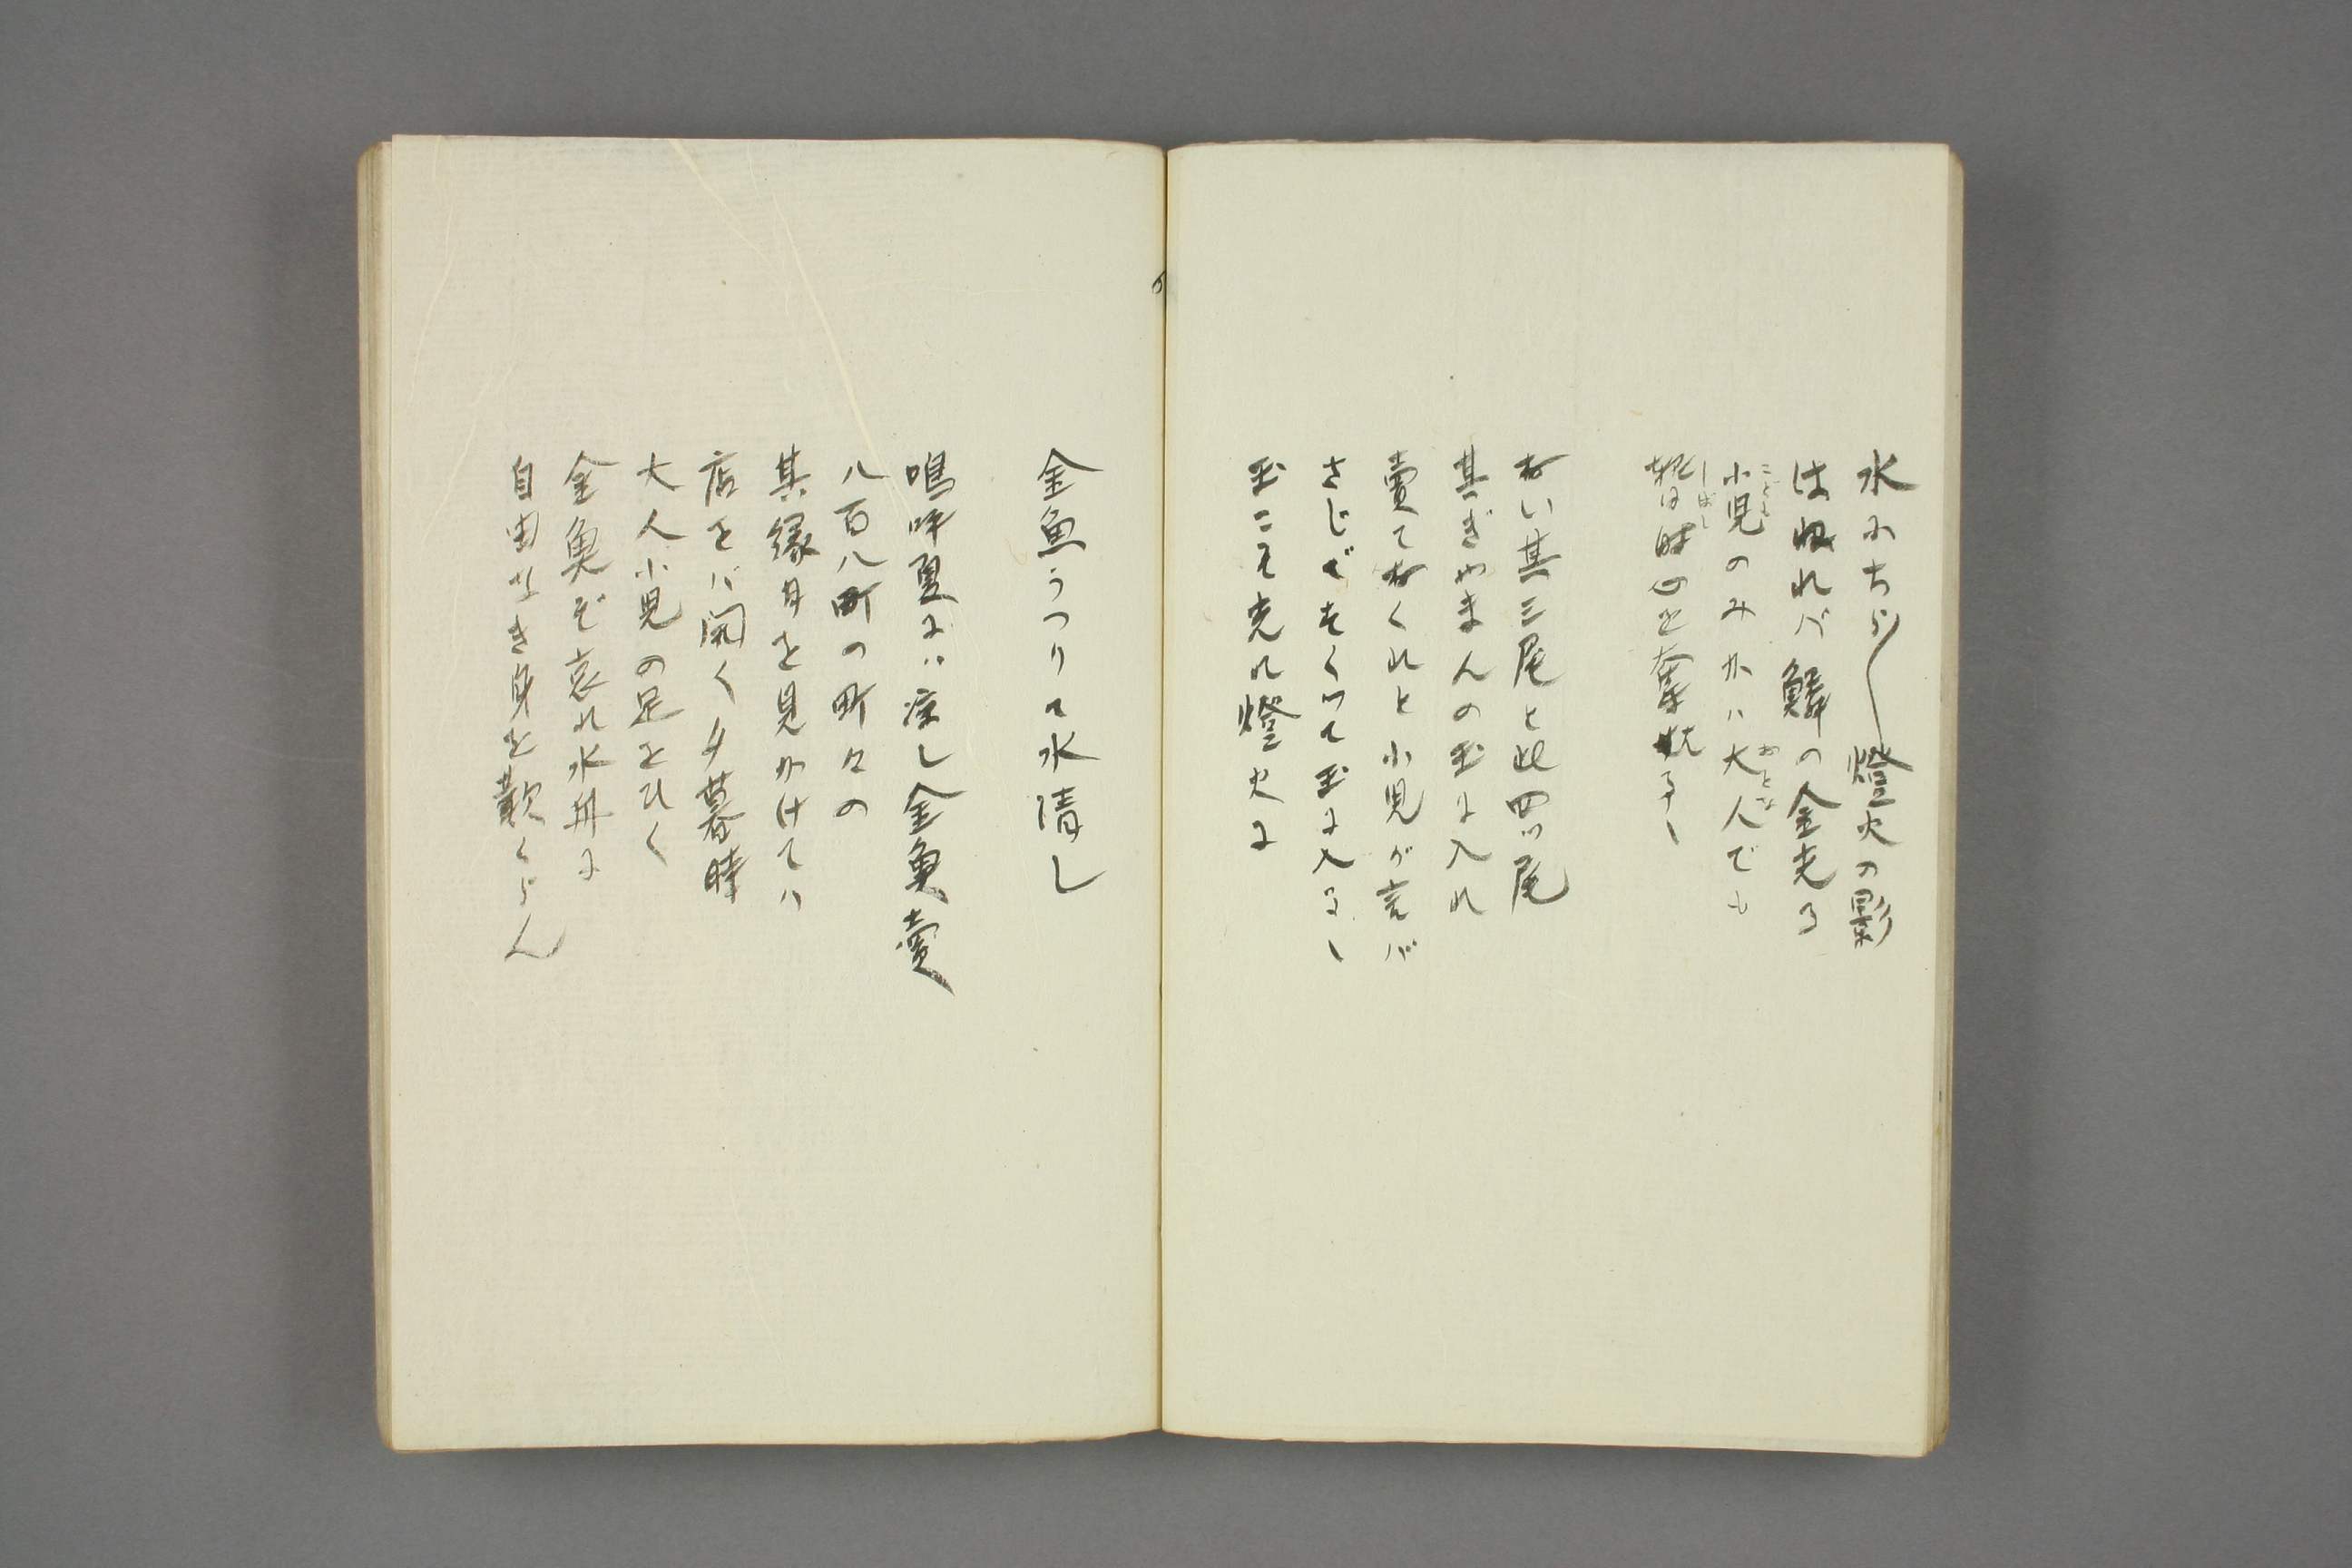 水にちら〳〵燈火の影
はねれバ鱗の金光る
小児のみかハ大人でも
こども
おとな
暫時心を奪はるゝ
しばし
おい其三尾と此四ツ尾
其ぎやまんの玉に入れ
賣ておくれと小児が言バ
さじですくひて玉に入るゝ
玉こそ光れ燈火に
金魚うつりて水清し
嗚呼夏にハ涼し金魚賣
八百八町の町々の
其縁日を見かけてハ
店をバ開く夕暮時
大人小児の足をひく
金魚ぞ哀れ水舟に
自由なき身を歎くらん